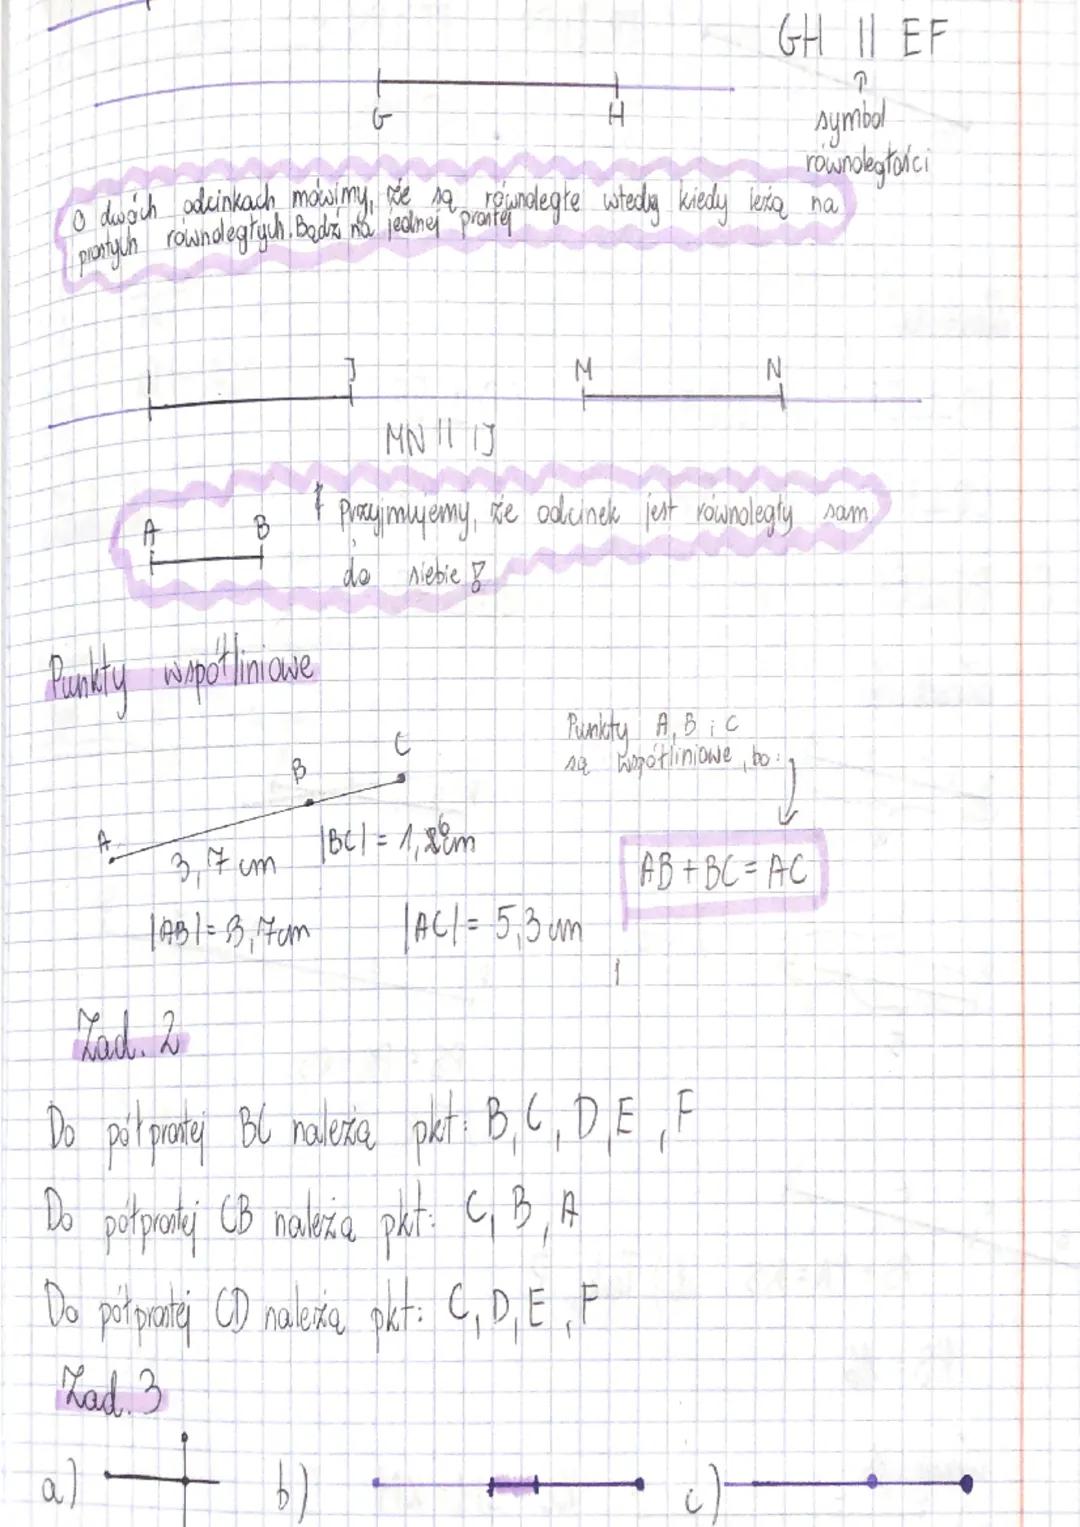 GH || EF
↑
G H
symbol
równoległości
O dwóch odcinkach mówimy, że są równoległe wtedy kiedy leżą na
prostych równoległych. Bądź na jednej prostej
I J M N
MN || IJ
A B
! Przyjmujemy, że odcinek jest równoległy sam
do siebie !
Punkty współliniowe
Punkty A, B i C
są współliniowe, bo:
A B C
3,7 cm |BC| = 1,6 cm
AB + BC = AC
|AB| = 3,7cm |AC| = 5,3 cm
Zad. 2
Do półprostej BC należą pkt: B, C, D, E, F
Do półprostej CB należą pkt: C, B, A
Do półprostej CD należą pkt: C, D, E, F
Zad. 3
a) b) c)